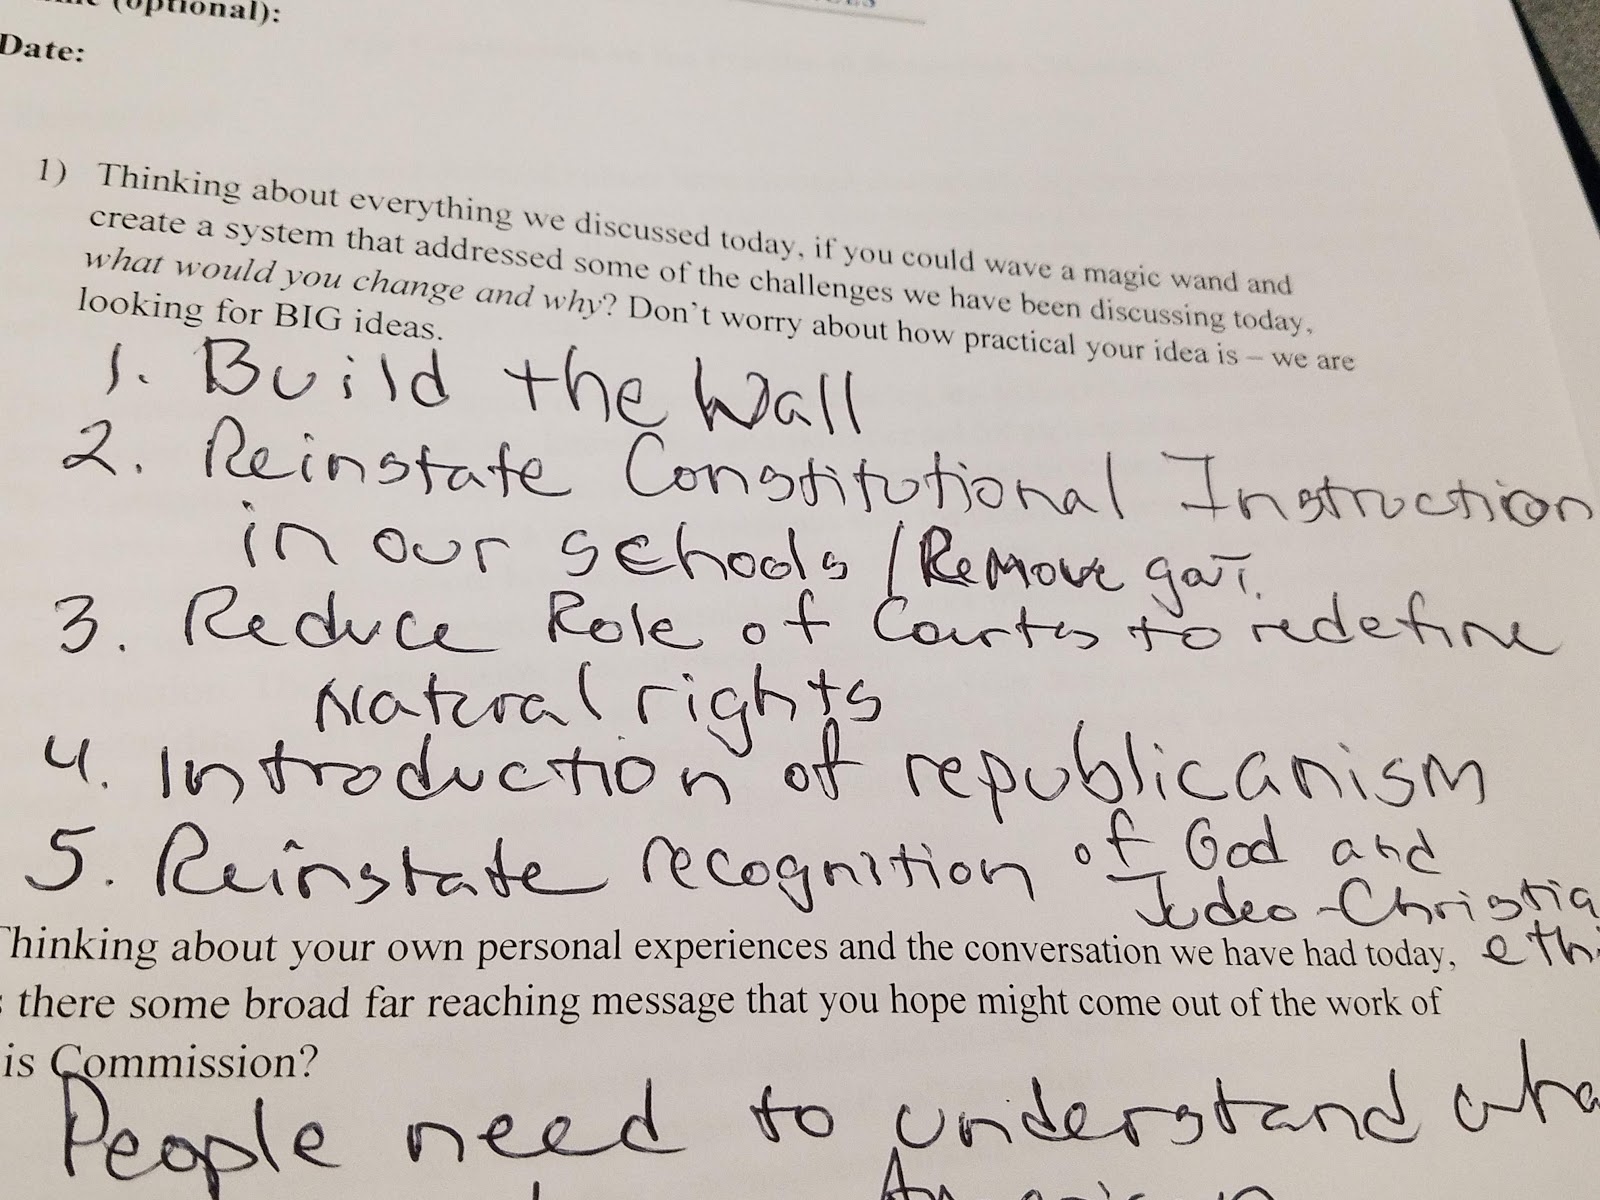 (optional):
Date:
1) Thinking about everything we discussed today, if you could wave a magic wand and
create a system that addressed some of the challenges we have been discussing today,
what would you change and why? Don't worry about how practical your idea is – we are
looking for BIG ideas.
1. Build the Wall
2. Reinstate Constitutional Instruction
in our schools / Remove gov't.
3. Reduce Role of Courts to redefine
Natural rights
4. Introduction of republicanism
5. Reinstate recognition of God and
Judeo-Christia
Thinking about your own personal experiences and the conversation we have had today, ethi
there some broad far reaching message that you hope might come out of the work of
is Commission?
People need to understand wha